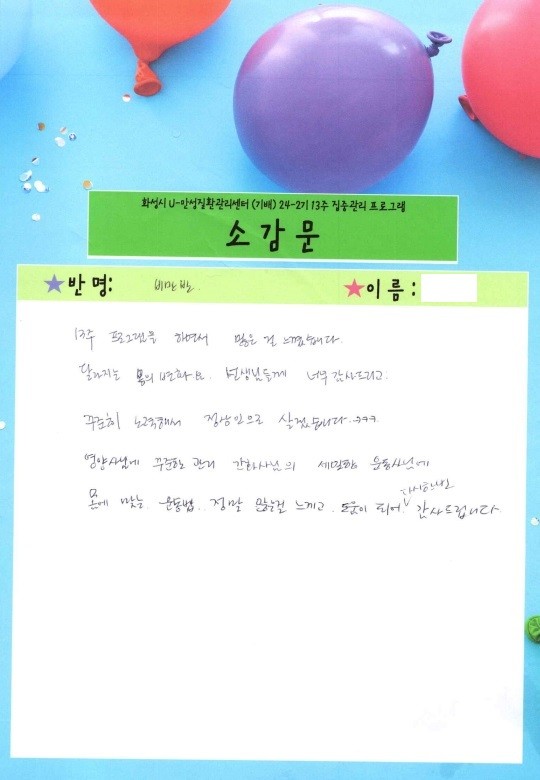 화성시 U-만성질환관리센터 (기배) 24-2기 13주 집중관리 프로그램
소감문
반명: 비만반
이름:
13주 프로그램을 하면서 많은 걸 느꼈습니다.
달라지는 몸의 변화로. 선생님들께 너무 감사드리고.
꾸준히 노력해서 정상인으로 살겠습니다. ㅋㅋㅋ
영양사님에 꾸준한 관리 간호사님의 세밀함 운동사님에
몸에 맞는 운동법.. 정말 많은걸 느끼고. 도움이 되어. 다시한번 감사드립니다.